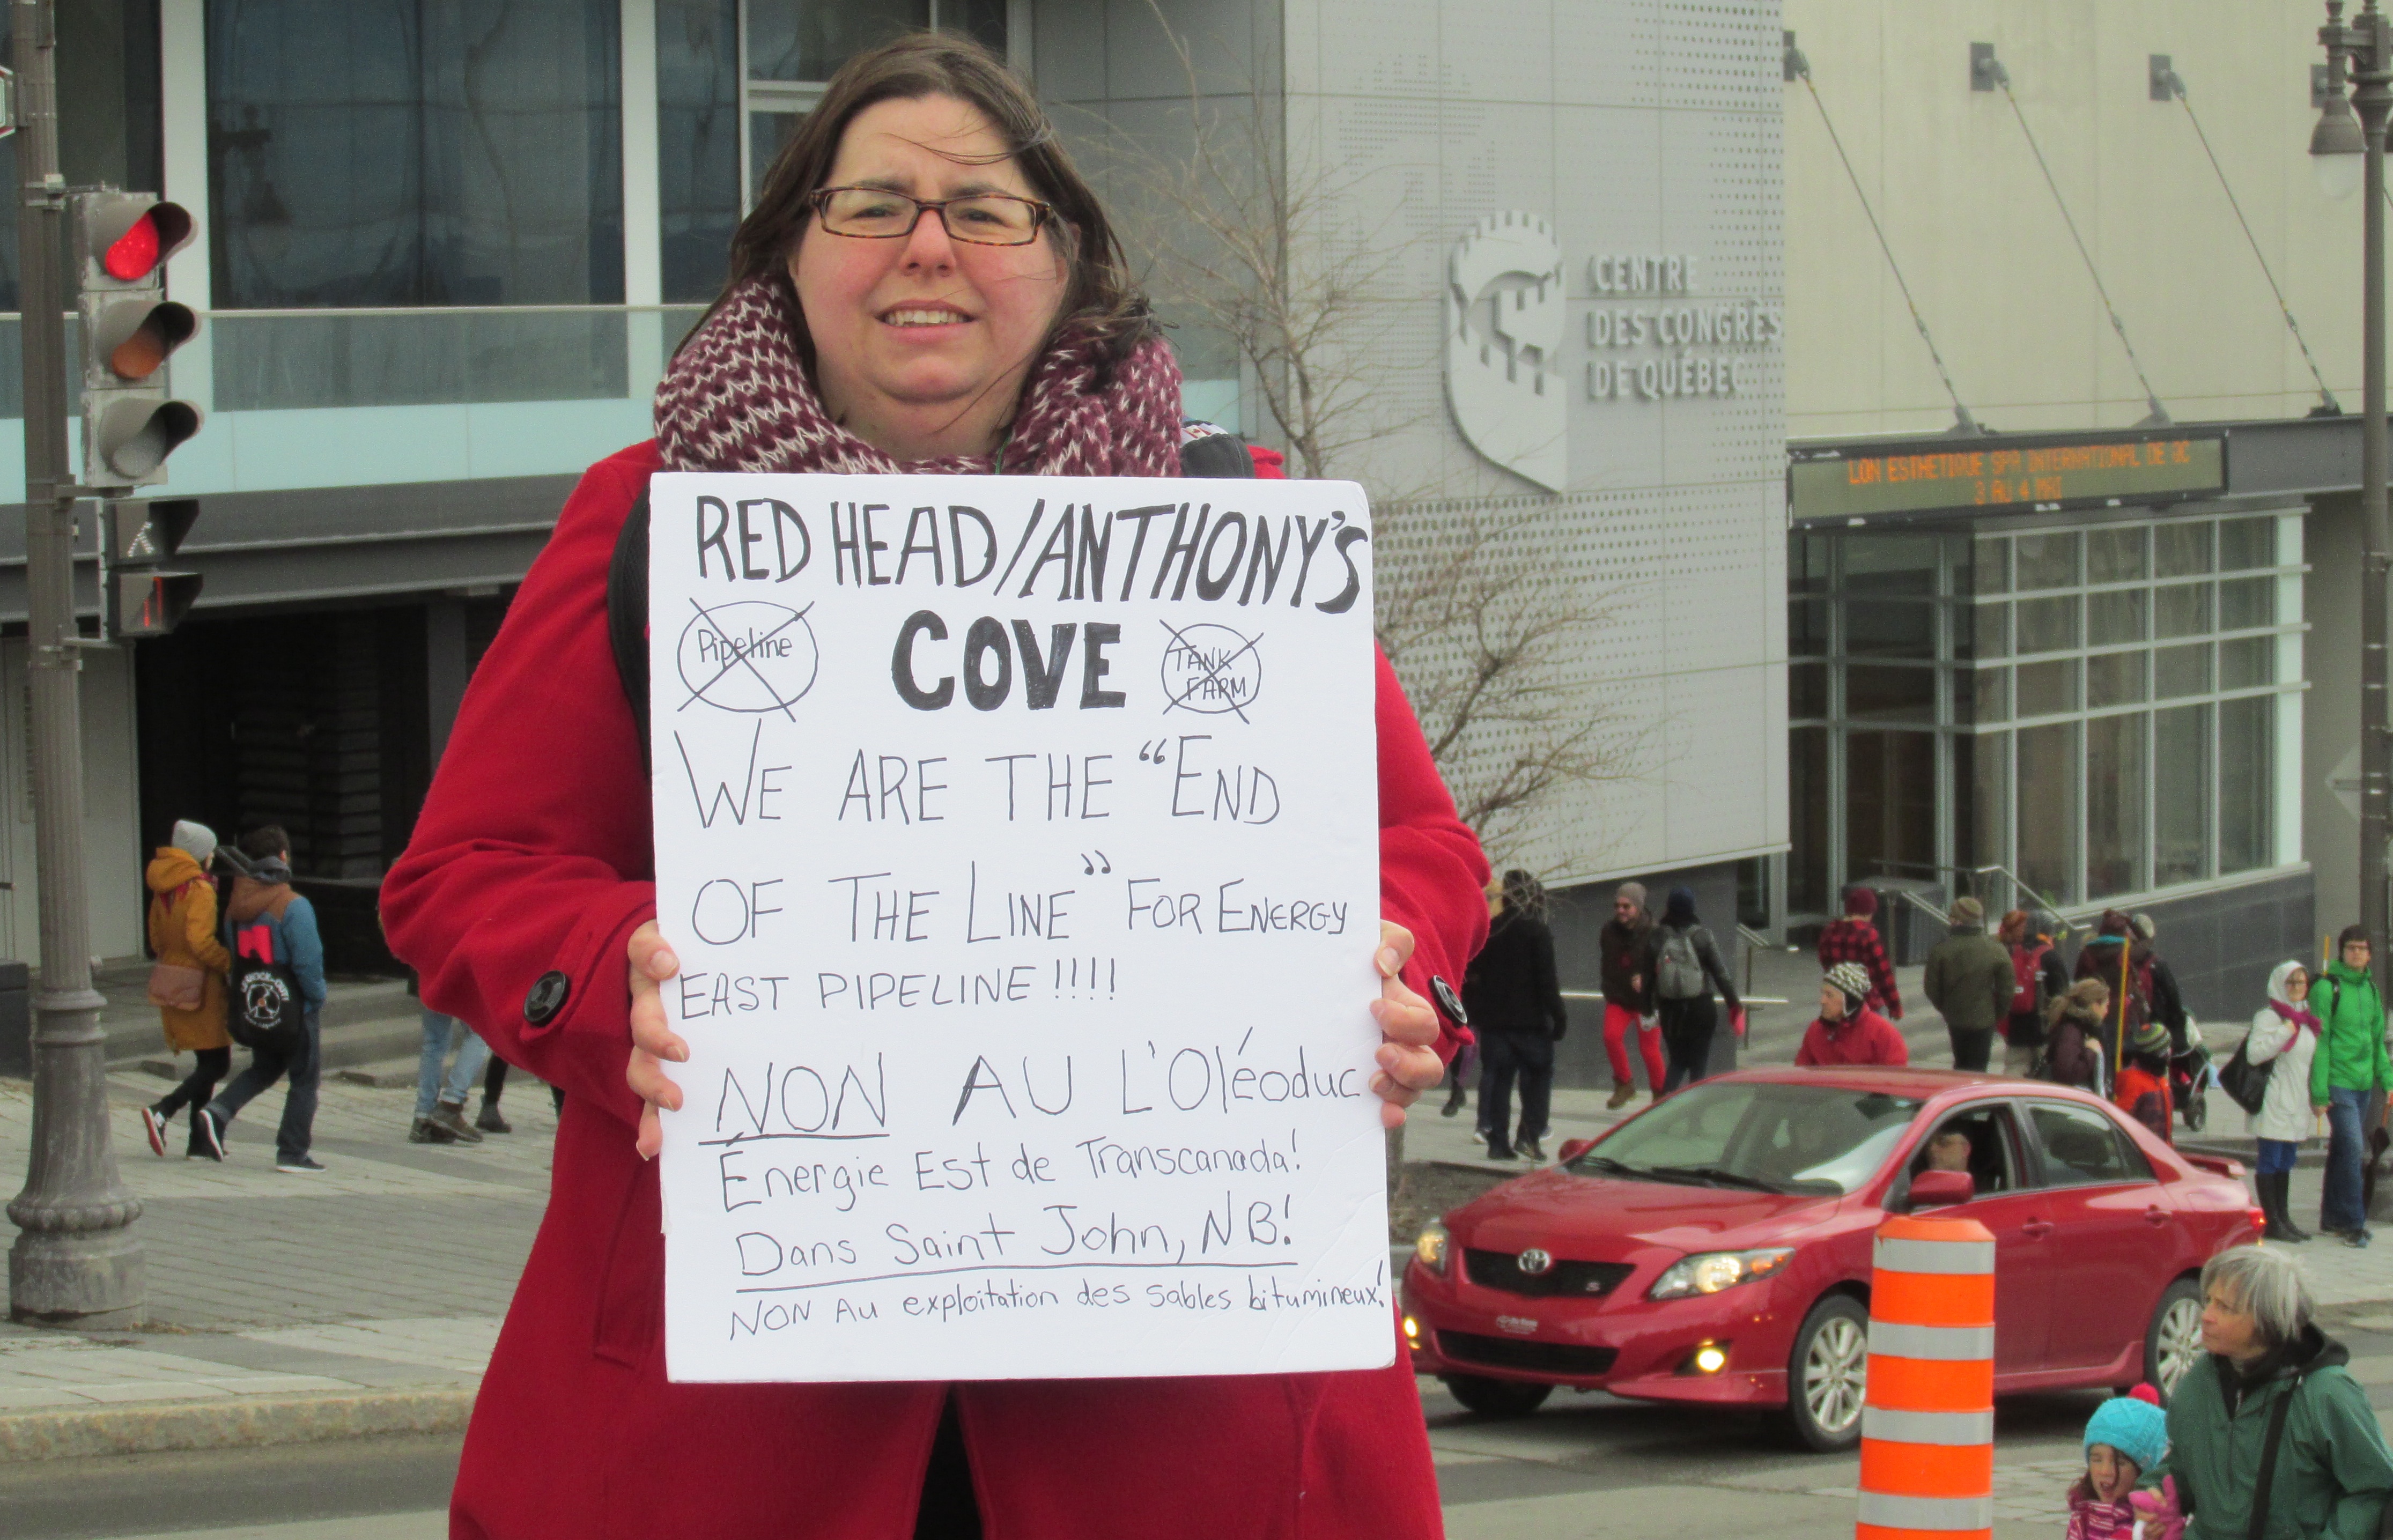 CENTRE
DES CONGRÈS
DE QUÉBEC
INTERNATIONAL DE QC
3 AU 4 MAI
RED HEAD/ANTHONY'S
Pipeline COVE TANK
FARM
WE ARE THE "END
OF THE LINE" FOR ENERGY
EAST PIPELINE!!!!
NON AU L'Oléoduc
Énergie Est de Transcanada!
Dans Saint John, NB!
NON AU exploitation des sables bitumineux!